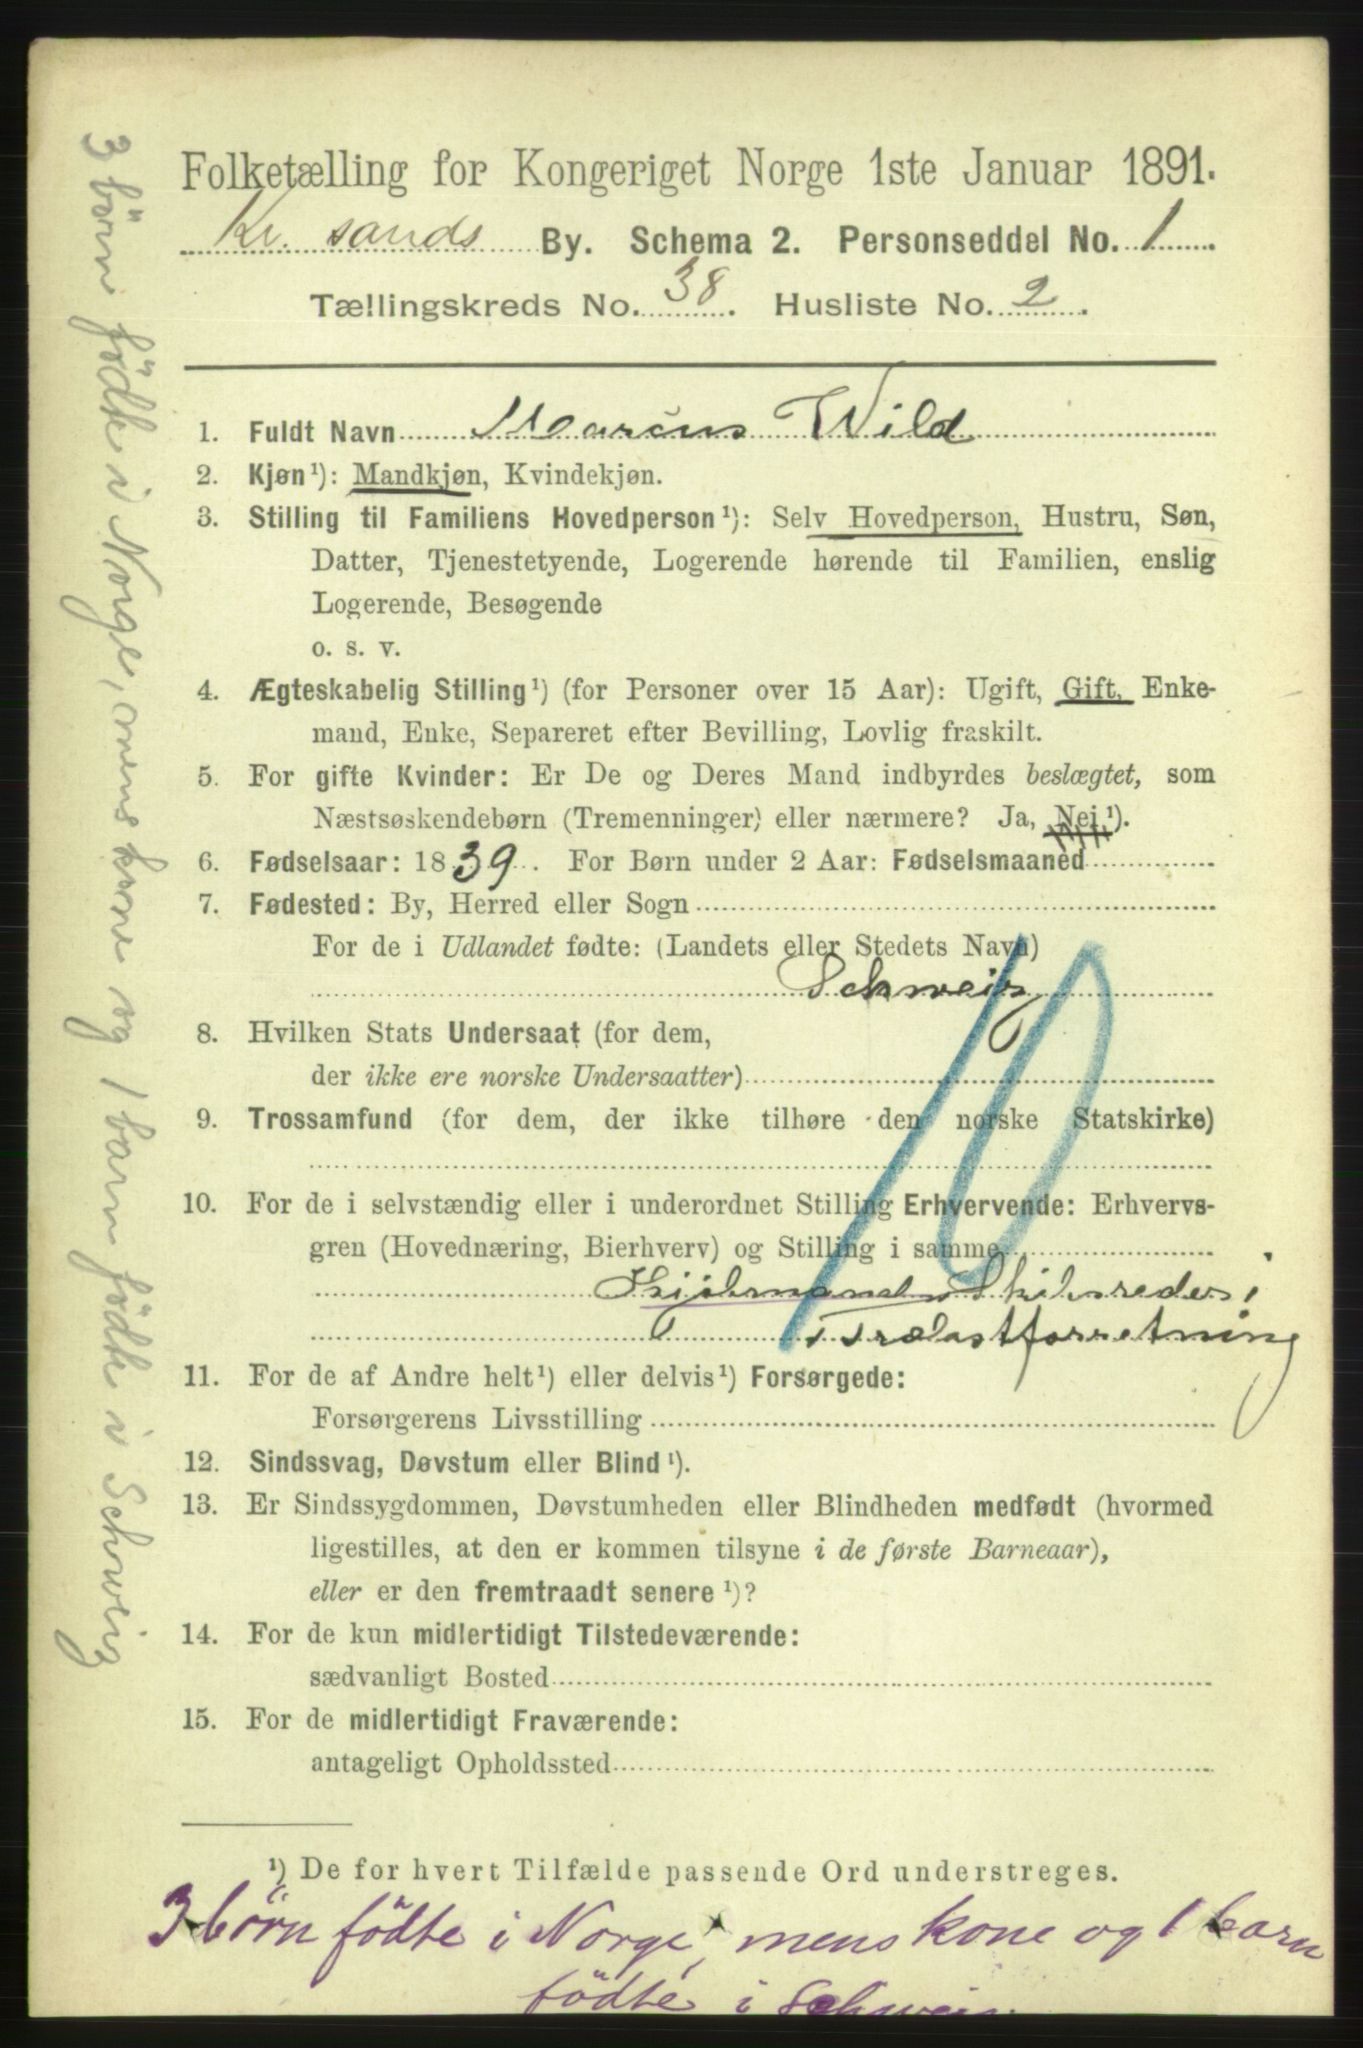 Folketælling for Kongeriget Norge 1ste Januar 1891.
Kr. sands By. Schema 2. Personseddel No. 1.
Tællingskreds No. 38. Husliste No. 2.
1. Fuldt Navn Marcus Wild
2. Kjøn¹): Mandkjøn, Kvindekjøn.
3. Stilling til Familiens Hovedperson¹): Selv Hovedperson, Hustru, Søn,
Datter, Tjenestetyende, Logerende hørende til Familien, enslig
Logerende, Besøgende
o. s. v.
4. Ægteskabelig Stilling¹) (for Personer over 15 Aar): Ugift, Gift, Enke-
mand, Enke, Separeret efter Bevilling, Lovlig fraskilt.
5. For gifte Kvinder: Er De og Deres Mand indbyrdes beslægtet, som
Næstsøskendebørn (Tremenninger) eller nærmere? Ja, Nei¹).
6. Fødselsaar: 1839. For Børn under 2 Aar: Fødselsmaaned
7. Fødested: By, Herred eller Sogn
For de i Udlandet fødte: (Landets eller Stedets Navn)
Schweiz
8. Hvilken Stats Undersaat (for dem,
der ikke ere norske Undersaatter)
9. Trossamfund (for dem, der ikke tilhøre den norske Statskirke)
10. For de i selvstændig eller i underordnet Stilling Erhvervende: Erhvervs-
gren (Hovednæring, Bierhverv) og Stilling i samme
Kjøbmand Skibsreder i
Trælastforretning
11. For de af Andre helt¹) eller delvis¹) Forsørgede:
Forsørgerens Livsstilling
12. Sindssvag, Døvstum eller Blind¹).
13. Er Sindssygdommen, Døvstumheden eller Blindheden medfødt (hvormed
ligestilles, at den er kommen tilsyne i de første Barneaar),
eller er den fremtraadt senere¹)?
14. For de kun midlertidigt Tilstedeværende:
sædvanligt Bosted
15. For de midlertidigt Fraværende:
antageligt Opholdssted
¹) De for hvert Tilfælde passende Ord understreges.
3 börn födte i Norge, mens kone og 1 barn
födte i Schweiz
3 börn födte i Norge, mens kone og 1 barn födte i Schweiz
10